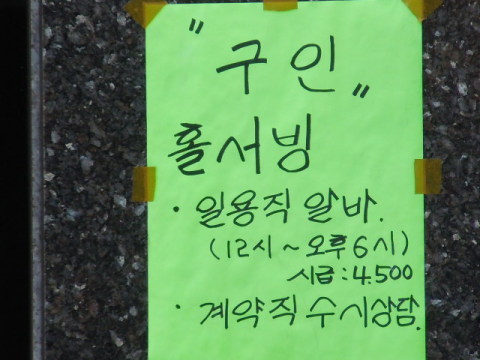 "구인"
홀서빙
· 일용직 알바.
(12시~오후6시)
시급:4.500
· 계약직 수시상담.